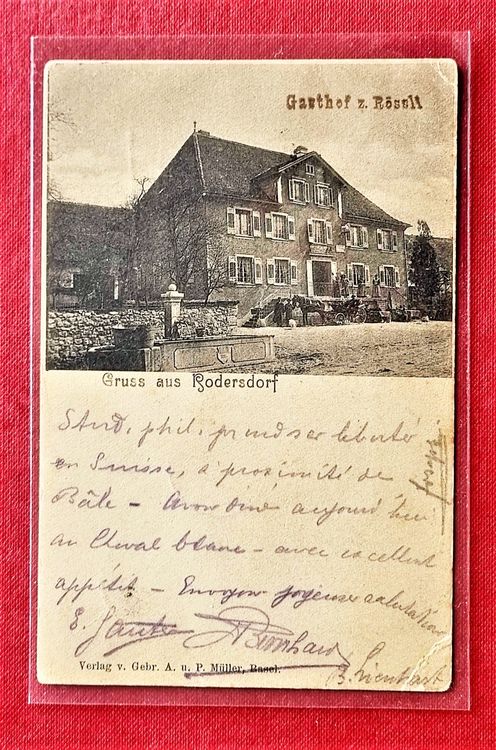 Gasthof z. Rössli
Gruss aus Rodersdorf
Stud. phil. prend ser liberté
en Suisse, à proximité de
Bâle - Avons diné aujourd'hui
au Cheval blanc - avec excellent
appétit - Envoyons joyeuses salutations
E. Bernhard
B. Lienhart
Verlag v. Gebr. A. u. P. Müller, Basel.